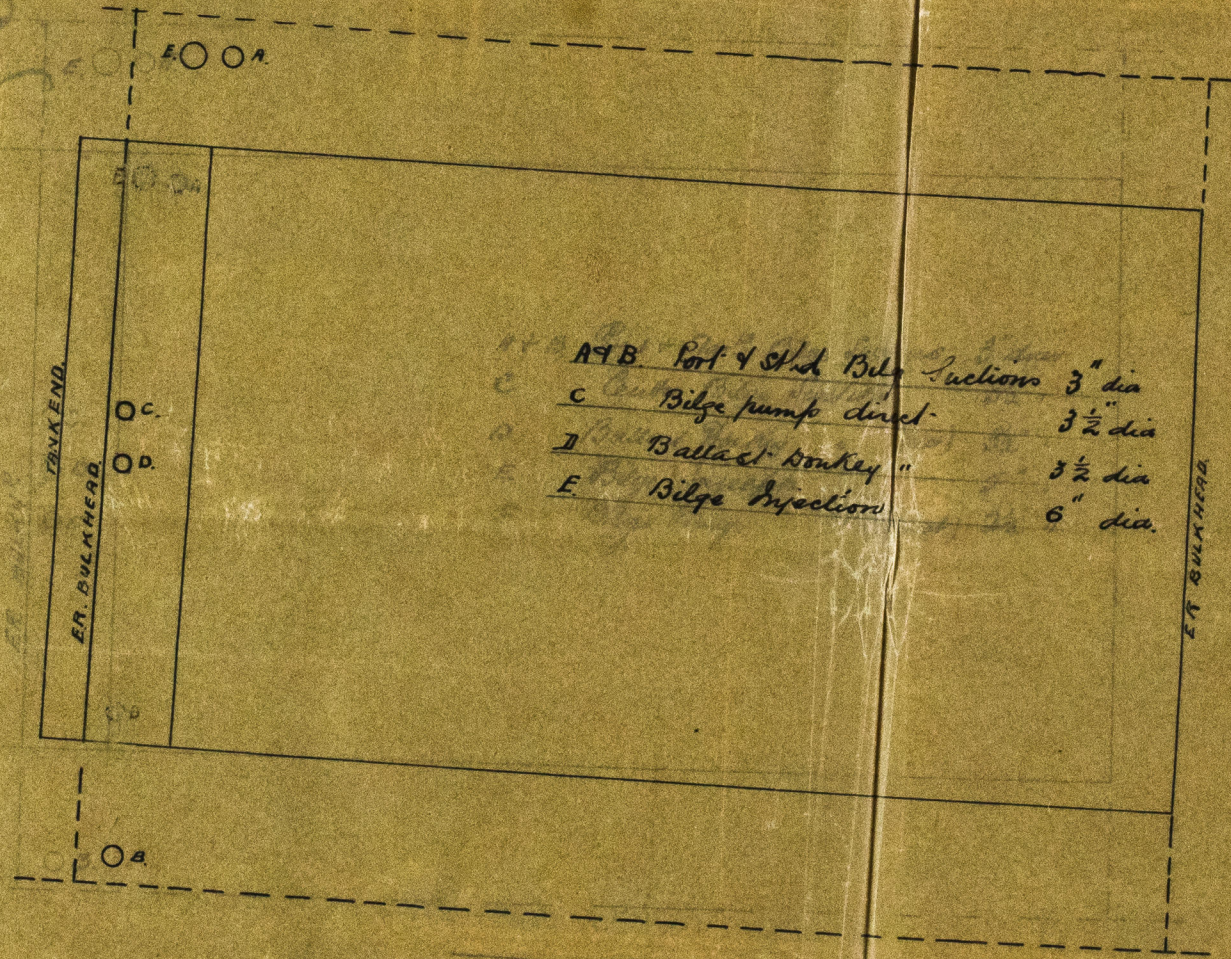 E. A.
TANKEND.
ER. BULKHEAD.
C.
D.
A & B. Port & Stbd Bilge Suctions 3" dia
C Bilge pump direct 3½" dia
D Ballast Donkey " 3½ dia
E. Bilge Injection 6" dia.
ER BULKHEAD.
B.